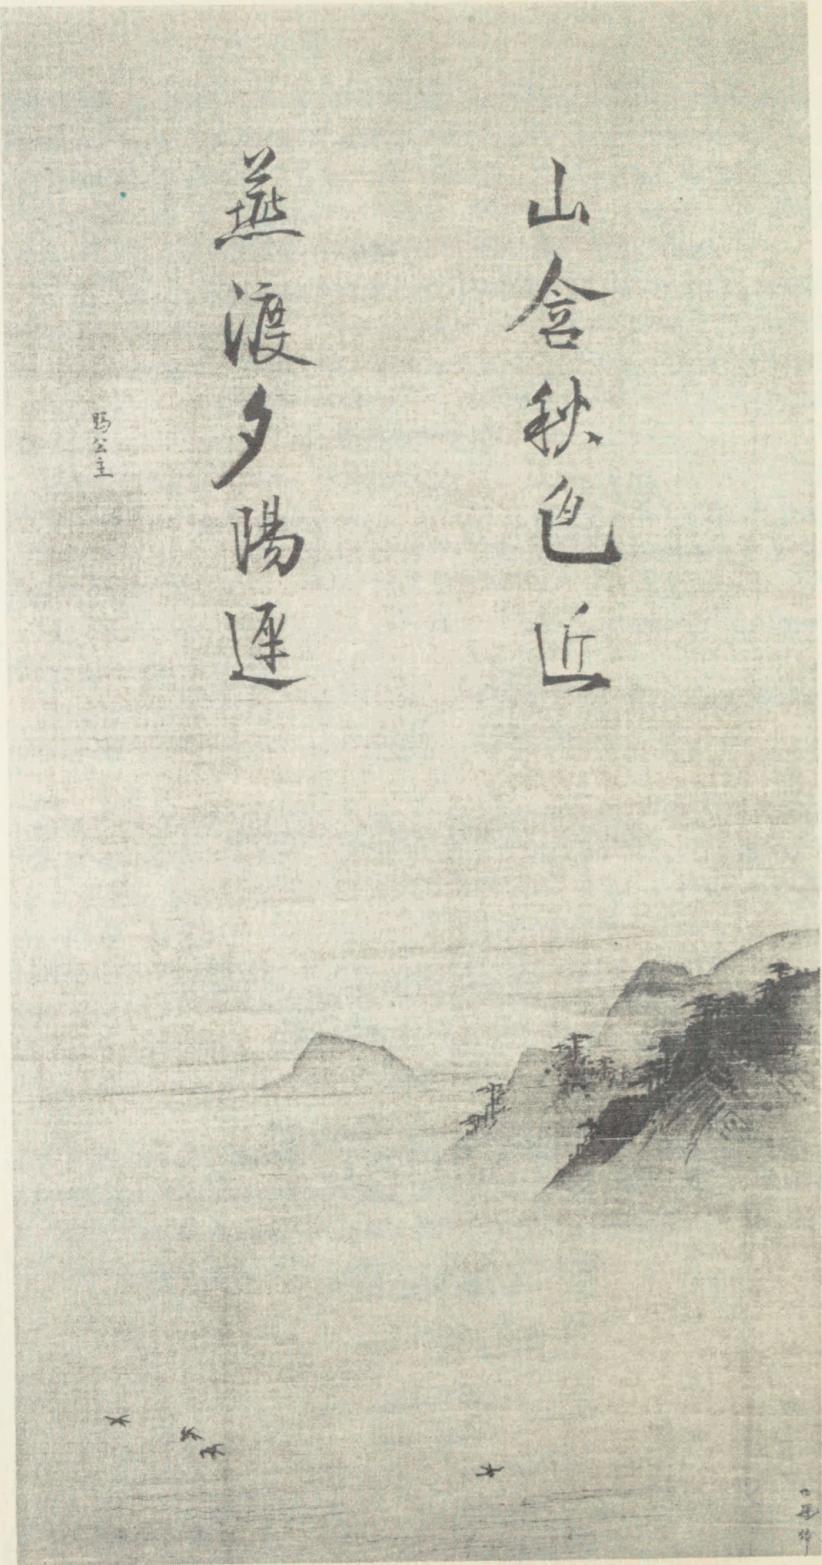 山含秋色近
燕渡夕陽遲
公主